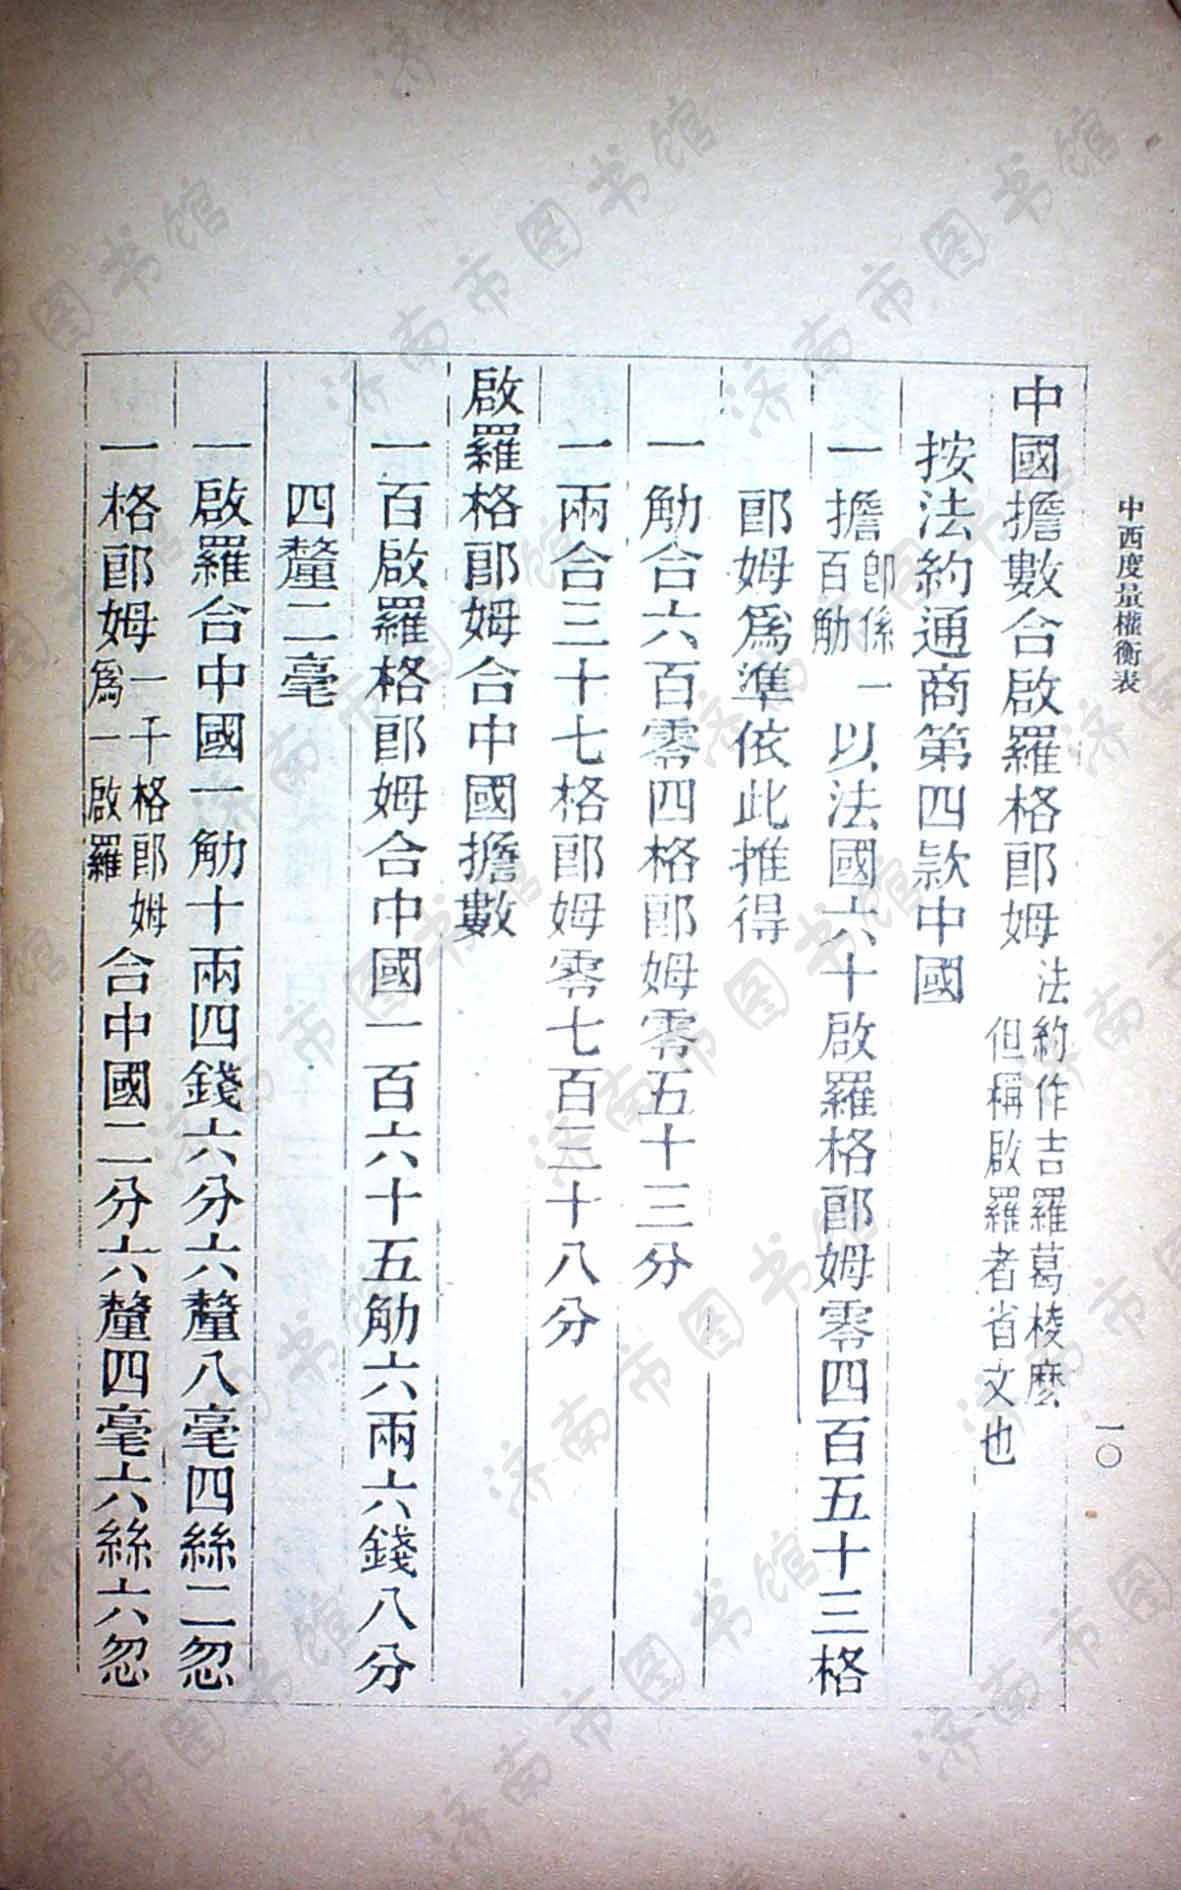 中西度量權衡表
一〇
中國擔數合啟羅格郎姆法約作吉羅葛棱麼
但稱啟羅者省文也
按法約通商第四款中國
一擔卽係一百觔以法國六十啟羅格郎姆零四百五十三格
郎姆爲準依此推得
一觔合六百零四格郎姆零五十三分
一兩合三十七格郎姆零七百三十八分
啟羅格郎姆合中國擔數
一百啟羅格郎姆合中國一百六十五觔六兩六錢八分
四釐二毫
一啟羅合中國一觔十兩四錢六分六釐八毫四絲二忽
一格郎姆一千格郎姆爲一啟羅合中國二分六釐四毫六絲六忽
济南市图书馆